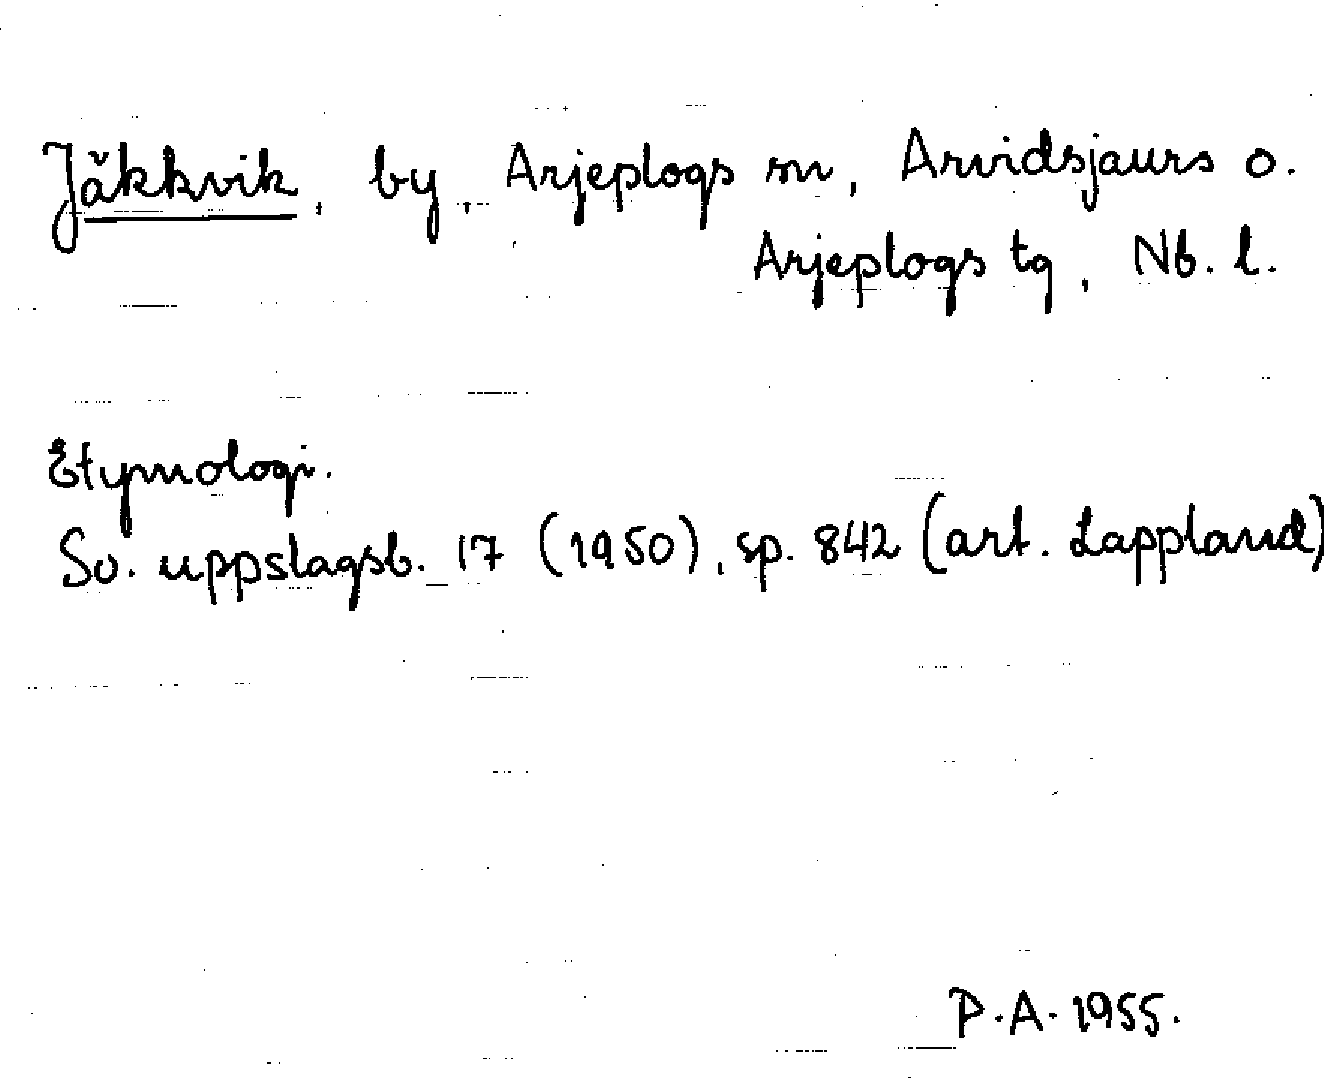 Jäkkvik, by, Arjeplogs sn, Arvidsjaurs o.
Arjeplogs tg, Nb. l.
Etymologi.
Sv. uppslagsb. 17 (1950), sp. 842 (art. Lappland)
P.A. 1955.